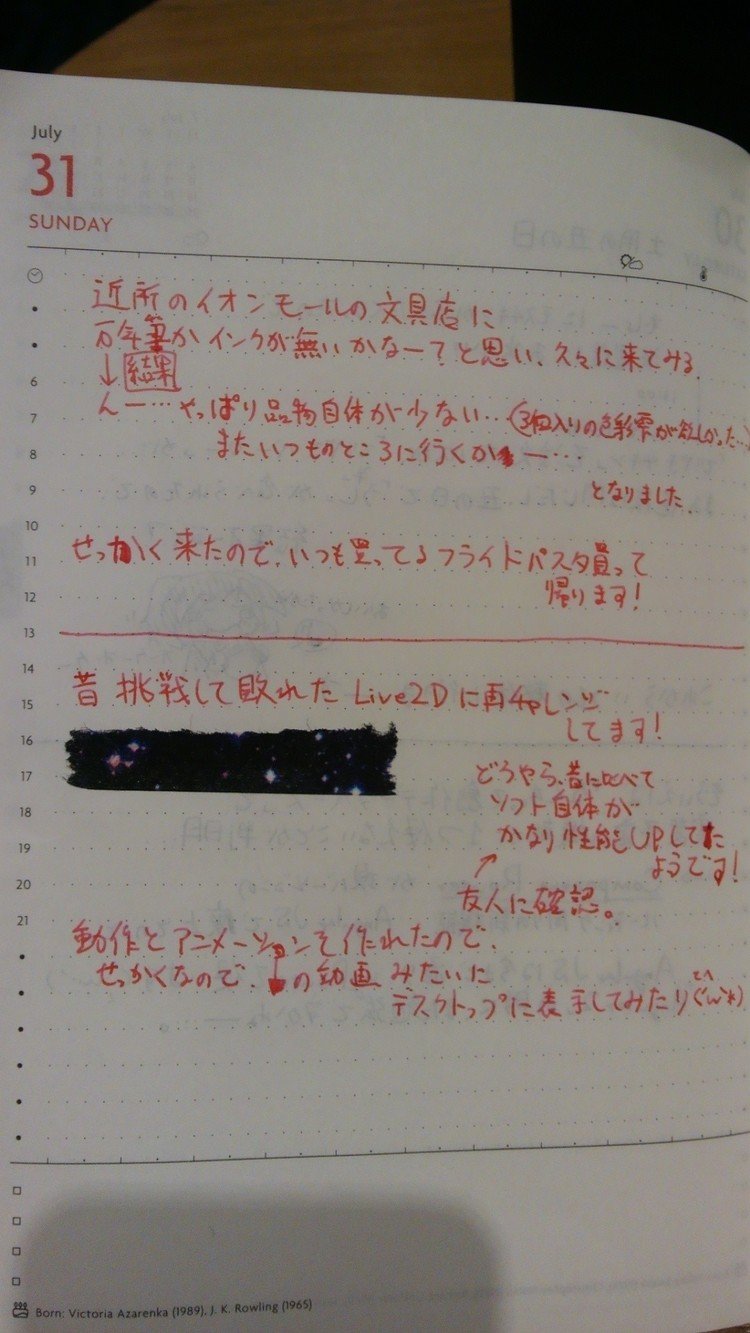 July
31
SUNDAY
近所のイオンモールの文具店に
万年筆かインクが無いかなー?と思い、久々に来てみる
↓ 結果
6
んー…やっぱり品物自体が少ない…(3個入りの色彩雫が欲しかった…)
7
またいつものところに行くか ー…
8
となりました
9
10
せっかく来たので、いつも買ってるフライドパスタ買って
11
帰ります!
12
13
14
昔 挑戦して敗れた Live2Dに再チャレンジ
15
してます!
16
どうやら、昔に比べて
17
ソフト自体が
18
かなり性能UPしてた
19
ようです!
20
友人に確認。
21
動作とアニメーションを作れたので、
せっかくなので、の動画みたいに
デスクトップに表示してみたり
Born: Victoria Azarenka (1989), J. K. Rowling (1965)